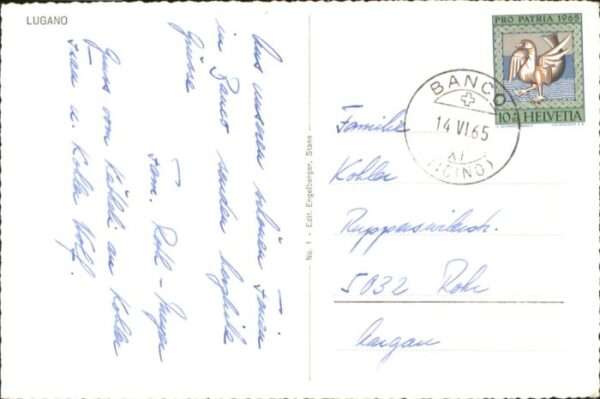 LUGANO
Aus unseren schönen Ferien
in Banco senden herzliche
Grüsse
Fam. Rohr - Meyer
Gruss vom Käthli an Kohler
Fran u. Kohler Wolf.
No. 1 - Edit. Engelberger, Stans
PRO PATRIA 1965
10
HELVETIA
BANCO
14 VI 65
(TICINO)
Familie
Kohler
Rupperswilerstr.
5032 Rohr
Aargau